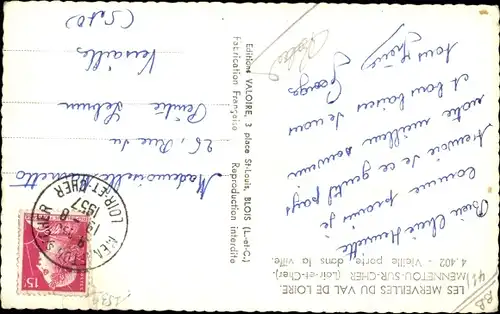 LES MERVEILLES DU VAL DE LOIRE
MENNETOU-SUR-CHER (Loir-et-Cher)
4.402 - Vieille porte dans la ville.
Bien Chère Henriette
Comme promis je
t'envoie de ce gentil pays
notre meilleur souvenir
et bons baisers de nous
tous
Georges
Editions VALOIRE, 3 place St-Louis, BLOIS (L.-et-C.)
Fabrication Française
Reproduction interdite
Mademoiselle
26, Rue du
Peintre Lebrun
Versailles
(S et O)
LOIR-ET-CHER
1957
15F